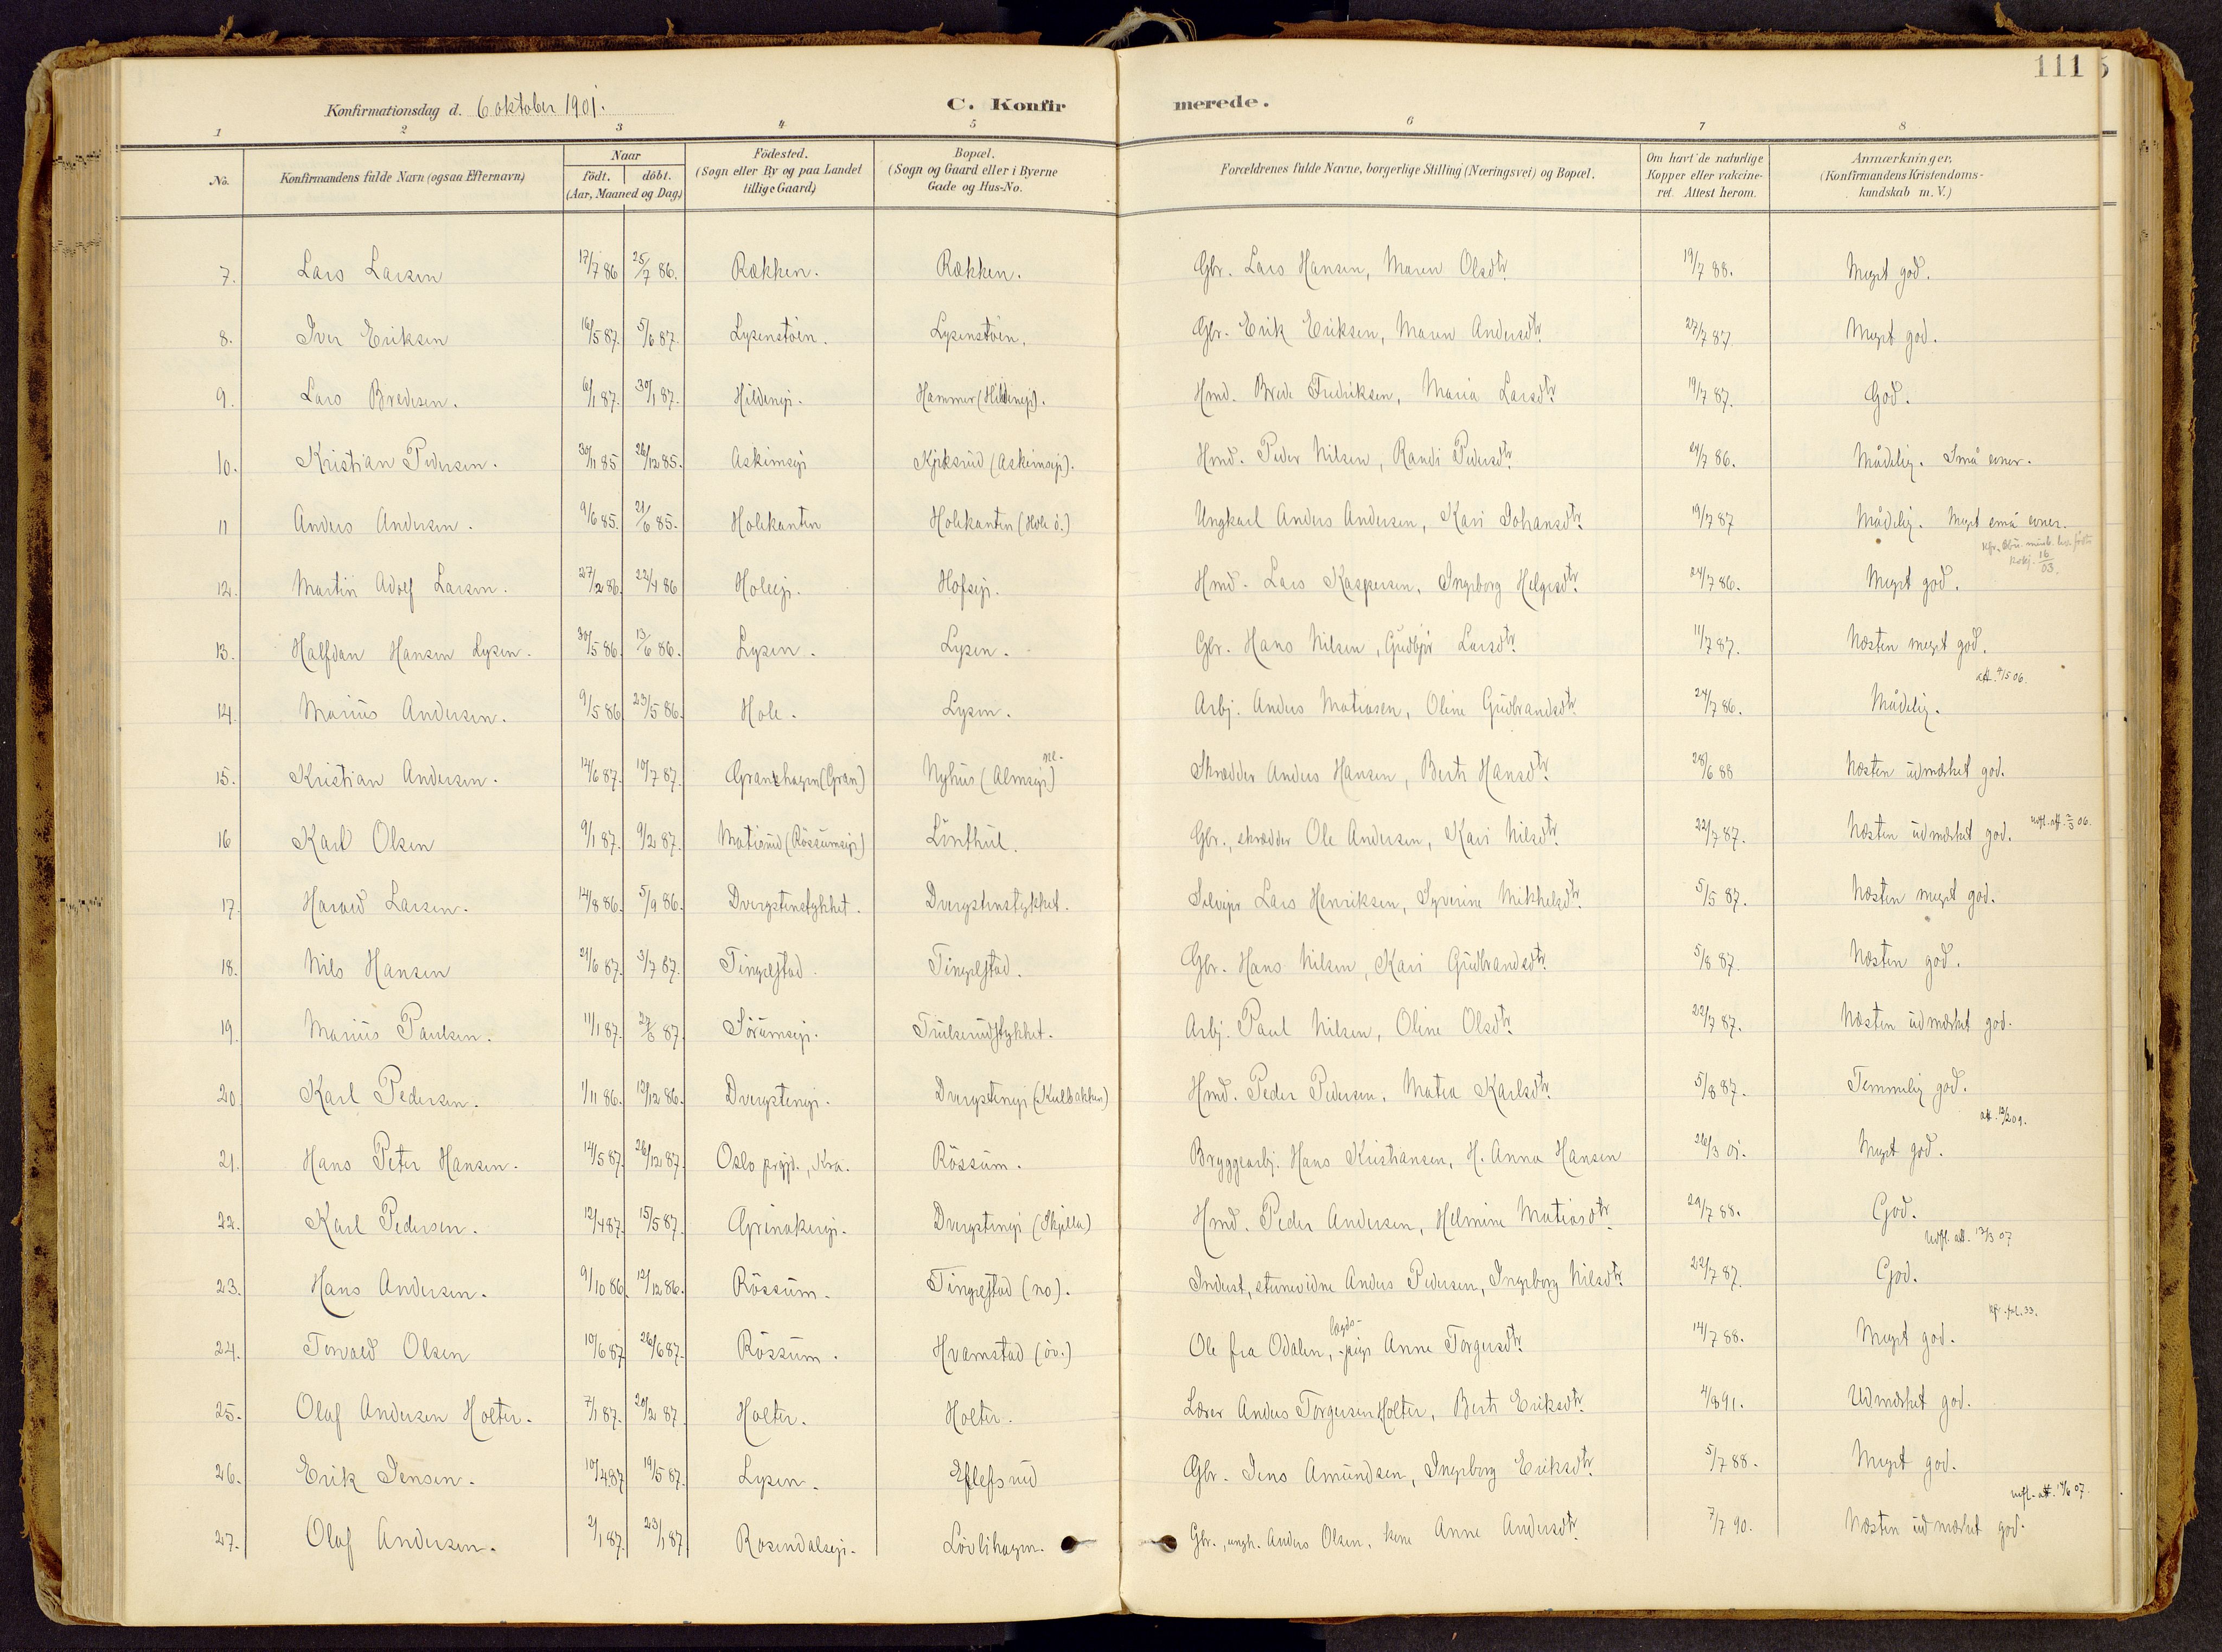 111
Konfirmationsdag d. 6 oktober 1901.
C. Konfirmerede.
1 2 3 4 5 6 7 8
No. Konfirmandens fulde Navn (ogsaa Efternavn) Naar født, døbt. (Aar, Maaned og Dag.) Fødested. (Sogn eller By og paa Landet tillige Gaard.) Bopæl. (Sogn og Gaard eller i Byerne Gade og Hus-No. Forældrenes fulde Navne, borgerlige Stilling (Næringsvei) og Bopæl. Om havt de naturlige Kopper eller vakcineret. Attest herom. Anmærkninger, (Konfirmandens Kristendomskundskab m. V.)
7. Lars Larsen 17/7 86 25/7 86. Rækken. Rækken. Gbr. Lars Hansen, Maren Olsdtr. 19/7 88. Meget god.
8. Iver Eriksen 16/5 87. 5/6 87. Lysenstøen. Lysenstøen. Gbr. Erik Eriksen, Maren Andersdtr. 27/7 87 Meget god.
9. Lars Bredesen. 6/1 87. 30/1 87. Hildenej. Hammer (Hildenej). Hmd. Brede Fredriksen, Maria Larsdtr. 19/7 87. God.
10. Kristian Pedersen. 30/11 85 26/12 85. Askimsej (Askimsej). Hmd. Peder Nilsen, Randi Pedersdtr. 24/7 86. Mådelig. Små evner.
11 Anders Andersen. 9/6 85. 21/6 85. Holekanten Holekanten (Hole ö.) Ungkarl Anders Andersen, Kari Johansdtr. 19/7 87 Mådelig. Meget små evner.
12. Martin Adolf Larsen. 27/2 86. 22/4 86 Holeej. Hofsej. Hmd. Lars Kaspersen, Ingeborg Helgesdtr. 24/7 86. Meget god.
13. Halfdan Hansen Lysen. 30/5 86. 13/6 86. Lysen. Lysen. Gbr. Hans Nilsen, Gudbjör Larsdtr. 11/7 87. Næsten meget god.
att. 4/5 06.
14. Marius Andersen. 9/5 86 23/5 86. Hole. Lysen. Arbj. Anders Matiasen, Oline Gudbrandsdtr. 24/7 86. Mådelig.
15. Kristian Andersen. 12/6 87. 10/7 87. Granshagen (Gran) Nyhus (Almsej) Skrædder Anders Hansen, Berte Hansdtr. 28/6 88 Næsten udmærket god.
16 Karl Olsen 9/1 87. 9/2 87. (Rössumsej) Linthul. Gbr., skrædder Ole Andersen, Kari Nilsdtr. 22/7 87. Næsten udmærket god.
17. Harald Larsen. 14/8 86. 5/9 86. Dvergstenstykket. Dvergstenstykket. Selvejer Lars Henriksen, Syverine Mikkelsdtr. 5/5 87. Næsten meget god.
18. Nils Hansen 21/6 87. 3/7 87. Tingelstad. Tingelstad. Gbr. Hans Nilsen, Kari Gudbrandsdtr. 5/8 87. Næsten god.
19. Marius Paulsen. 11/1 87. 87. Sörumsej. Trulserudstykket. Arbj. Paul Nilsen, Oline Olsdtr. 22/7 87. Næsten udmærket god.
20. Karl Pedersen. 1/11 86. 12/12 86. Dvergstenej. Dvergstenej (Kulbakken) Hmd. Peder Pedersen, Matea Karlsdtr. 5/8 87. Temmelig god.
21. Hans Peter Hansen. 14/5 87. 26/12 87. Oslo prgjd., Kra. Rössum. Bryggearbj. Hans Kristiansen, H. Anna Hansen 26/3 01. Meget god.
22. Karl Pedersen. 12/4 87. 15/5 87. Grinakerej. Dvergstenej (Skjella) Hmd. Peder Andersen, Helmine Matiasdtr. 29/7 88. God.
Udfl. att. 12/3 07
23. Hans Andersen. 9/10 86. 12/12 86. Rössum. Tingelstad (no). Inderst, stenevidne Anders Pedersen, Ingeborg Nilsdtr. 22/7 87. God.
kfr. fol. 33.
24. Torvald Olsen 10/6 87 26/6 87. Rössum. Hvamstad (öv.) Ole fra Odalen, lægds-pige Anne Torgersdtr. 14/7 88. Meget god.
25. Olaf Andersen Holter. 7/1 87. 20/2 87. Holter. Holter. Lærer Anders Torgersen Holter, Berte Eriksdtr. 4/8 91. Udmærket god.
26. Erik Jensen. 10/4 87 19/5 87. Lysen. Eflefsrud Gbr. Jens Amundsen, Ingeborg Eriksdtr. 5/7 88. Meget god.
27. Olaf Andersen. 2/1 87. 23/1 87 Rosendalsej. Lövlihagen. Gbr., ungk. Anders Olsen, kone Anne Andersdtr. 7/7 90. Næsten udmærket god.